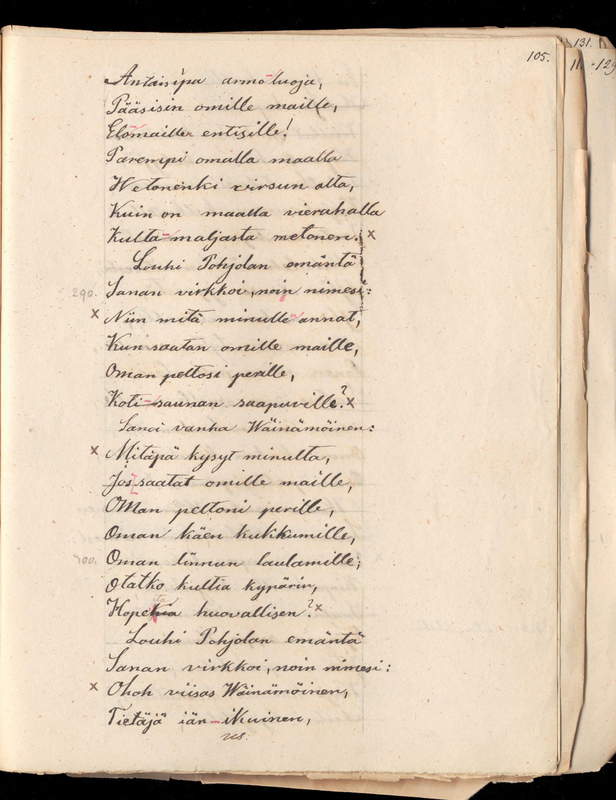 131.
105.
11 - 129
Antaisipa armo-luoja,
Pääsisin omille maille,
Elomailler entisille!
Parempi omalla maalla
Wetonenki virsun alta,
Kuin on maalla vierahalla
Kulta-maljasta metonen. x
Louhi Pohjolan emäntä
290. Sanan virkkoi, noin nimesi:
x Niin mitä minulle annat,
Kun saatan omille maille,
Oman peltosi perille,
Koti-saunan saapuville? x
Sanoi vanha Wäinämöinen:
x Mitäpä kysyt minulta,
Jos saatat omille maille,
Oman peltoni perille,
Oman käen kukkumille,
300. Oman linnun laulamille;
Otatko kultia kypärin,
Hopeita huovallisen? x
Louhi Pohjolan emäntä
Sanan virkkoi, noin nimesi:
x Ohoh viisas Wäinämöinen,
Tietäjä iän-ikuinen,